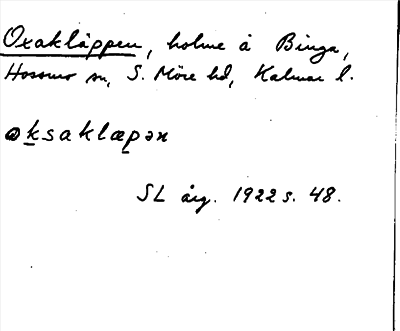 Oxakläppen, holme å Binga,
Hossmo sn, S. Möre hd, Kalmar l.
ɷksaklæpən
SL årg. 1922 s. 48.